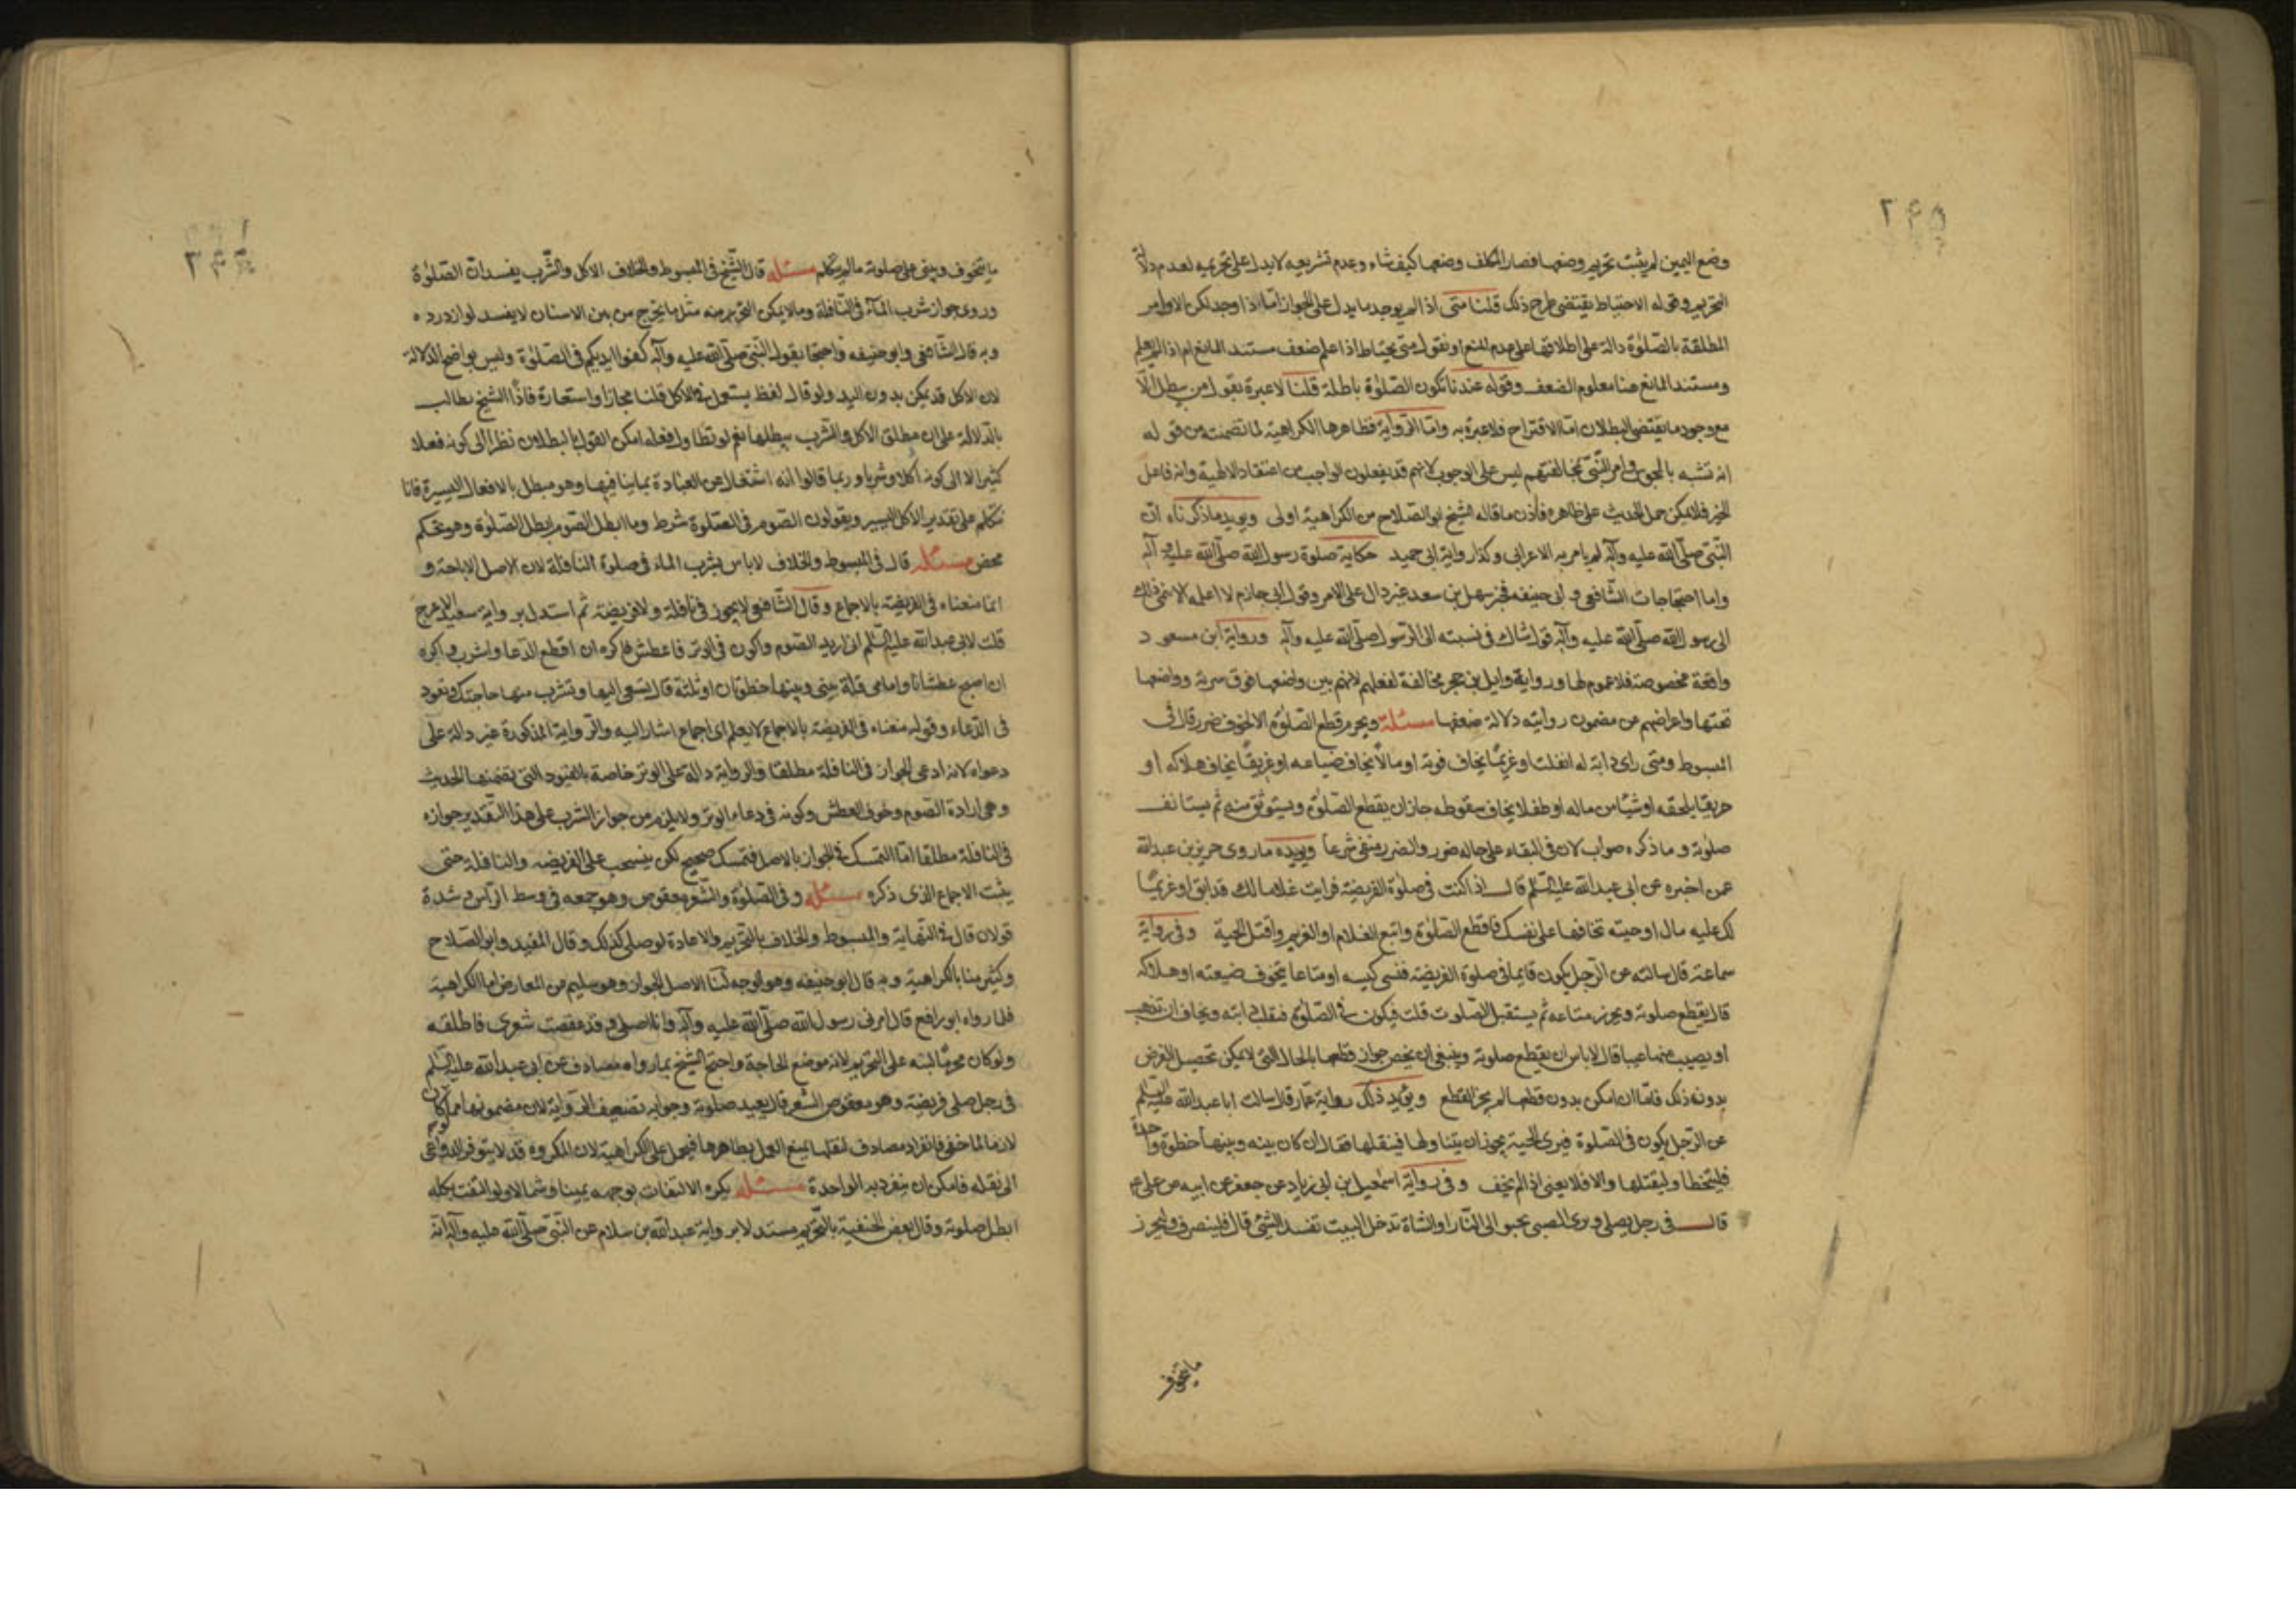 وضع اليمين لم يثبت تحريم وضعها فصار للمكلف وضعها كيف شاء وعدم تشريعه لا يدل على تحريمه لعدم دلالة
التحريم وقوله الاحتياط يقتضى طرح ذلك قلنا متى اذا لم يوجد ما يدل على الجواز اما اذا وجد لكن الاوامر
المطلقة بالصلوة دالة على اطلاقها على عدم المنع او نقول متى يحتاط اذا علم ضعف مستند المانع ام اذا لم يعلم
ومستند المانع هنا معلوم الضعف وقوله عندنا تكون الصلوة باطلة قلنا لا عبرة بقول من يبطل الا
مع وجود ما يقتضى البطلان اما الاقتراح فلا عبرة به واما الرواية فظاهرها الكراهية لما تضمنت من قوله
انه تشبه بالمجوس وامر النبى بمخالفتهم ليس على الوجوب لانهم قد يفعلون الواجب من اعتقاد الالهية وانه فاعل
الخير فلا يمكن حمل الحديث على ظاهره فاذن ما قاله الشيخ ابو الصلاح من الكراهية اولى ويويد ما ذكرناه ان
النبى صلى الله عليه وآله لم يامر به الاعرابى وكذا رواية ابى حميد حكاية صلوة رسول الله صلى الله عليه وآله
واما احتجاجات الشافعى و ابى حنيفه فخبر سهل بن سعد غير دال على الامر وقول ابى حازم لا اعلمه الا ينمى ذلك
الى رسول الله صلى الله عليه وآله قول شاك فى نسبته الى الرسول صلى الله عليه وآله ورواية ابن مسعود
واقعة مخصوصة فلا عموم لها ورواية وايل بن حجر مخالفة لفعلهم لانهم بين واضعها فوق سرته وواضعها
تحتها واعراضهم عن مضمون روايته دلالة ضعفها مسئلة ويحرم قطع الصلوة الا لخوف ضرر قال فى
المبسوط ومتى راى دابة له انفلتت او غريما يخاف فوته او مالا يخاف ضياعه او غريقا يخاف هلاكه او
حريقا يلحقه او شيئا من ماله او طفلا يخاف سقوطه جاز ان يقطع الصلوة ويستوثق منه ثم يستانف
صلوته وما ذكره صواب لان فى البقاء على حاله ضرر والضرر منفى شرعا ويويده ما روى حريز بن عبدالله
عمن اخبره عن ابى عبدالله عليه السلم قال اذا كنت فى صلوة الفريضة فرايت غلاما لك قد ابق او غريما
لك عليه مال او حيته تخافها على نفسك فاقطع الصلوة واتبع الغلام او الغريم واقتل الحية وفى رواية
سماعة قال سالته عن الرجل يكون قايما فى صلوة الفريضة فنسى كيسه او متاعا يتخوف ضيعته او هلاكه
قال يقطع صلوته ويحرز متاعه ثم يستقبل الصلوت قلت فيكون فى الصلوة فتفلت دابته ويخاف ان تذهب
او يصيب منها عيبا قال لا باس ان يقطع صلوته وينبغى ان يخص جواز قطعها بالحال التى لا يمكن تحصيل الغرض
بدونه ذلك فاما ان امكن بدون قطعها لم يجز القطع ويؤيد ذلك رواية عمار قال سالت ابا عبدالله عليه السلم
عن الرجل يكون فى الصلوة فيرى الحية يجوز ان يتناولها فيقتلها فقال ان كان بينه وبينها خطوة واحدة
فليتخطا وليقتلها والا فلا يعنى اذا لم يخف وفى رواية اسمعيل بن ابى زياد عن جعفر عن ابيه عن على ع
قال فى رجل يصلى ويرى الصبى يحبو الى النار او الشاة تدخل البيت تفسد الشئ قال فلينصرف وليحرز
ما يتخوف
ما يتخوف ويبنى على صلوته ما لم يتكلم مسئله قال الشيخ فى المبسوط والخلاف الاكل والشرب يفسدان الصلوة
وروى جواز شرب المآء فى النافلة وما لا يمكن التحرز منه مثل ما يخرج من بين الاسنان لا يفسد لو ازدرده
وبه قال الشافعى وابو حنيفه واحتجا بقول النبى صلى الله عليه وآله كفوا ايديكم فى الصلوة وليس بواضح الدلالة
لان الاكل قد يمكن بدون اليد ولو قال لفظ يستعمل فى الاكل قلنا مجازا واستعارة فاذًا الشيخ يطالب
بالدلالة على ان مطلق الاكل والشرب يبطلها نعم لو تطاول فعله امكن القول بالبطلان نظرا الى كونه فعلا
كثيرا لا الى كونه اكلا وشربا وربما قالوا انه اشتغال عن العبادة بما ينافيها وهو مبطل بالافعال اليسيرة فانا
نتكلم على تقدير الاكل اليسير ويقولون الصوم فى الصلوة شرط وما ابطل الصوم ابطل الصلوة وهو تحكم
محض مسئله قال فى المبسوط والخلاف لا باس بشرب الماء فى صلوة النافلة لان الاصل الاباحة و
انما منعناه فى الفريضة بالاجماع وقال الشافعى لا يجوز فى نافلة ولا فريضة ثم استدل برواية سعيد الاعرج
قلت لابى عبدالله عليه السلم انى اريد الصوم واكون فى الوتر فاعطش فاكره ان اقطع الدعا واشرب واكره
ان اصبح عطشانا وامامى قلة بينى وبينها خطوتان او ثلثة قال تسعى اليها وتشرب منها حاجتك وتعود
فى الدعاء وقوله منعناه فى الفريضة بالاجماع لا يعلم اى اجماع اشار اليه والرواية المذكورة غير دالة على
دعواه لانه ادعى الجواز فى النافلة مطلقا والرواية دالة على الوتر خاصة بالقيود التى تضمنها الحديث
وهى ارادة الصوم وخوف العطش وكونه فى دعاء الوتر ولا يلزم من جواز الشرب على هذا التقدير جوازه
فى النافلة مطلقا اما التمسك فى الجواز بالاصل فتمسك صحيح لكن ينسحب على الفريضه والنافلة حتى
يثبت الاجماع الذى ذكره مسئله وفى الصلوة والشعر معقوص وهو جمعه فى وسط الرأس وشدة
قولان قال فى النهاية والمبسوط والخلاف بالتحريم والاعادة لو صلى كذلك وقال المفيد وابو الصلاح
وكثير منا بالكراهية وبه قال ابو حنيفه وهو الوجه لنا الاصل الجواز وهو سليم عن المعارض اما الكراهية
فلما رواه ابو رافع قال امرنى رسول الله صلى الله عليه وآله وانا اصلى وقد عقصت شعرى فاطلقه
ولو كان محرما لنبه على التحريم لانه موضع الحاجة واحتج الشيخ بما رواه مصادف عن ابى عبدالله عليه السلم
فى رجل صلى فريضة وهو معقوص الشعر قال يعيد صلوته وجوابه تضعيف الرواية لان مضمونها مما لو كان
لازما لما خفى فانفراد مصادف لنقلها يمنع العمل بظاهرها فيحمل على الكراهية لان المكروه قد لا يتوفر الدواعى
الى نقله فامكن ان ينفرد به الواحدة مسئله يكره الالتفات بوجهه يمينا وشمالا ولو التفت بكله
ابطل صلوته وقال بعض الحنفية بالتحريم مستدلا برواية عبدالله بن سلام عن النبى صلى الله عليه وآله انه